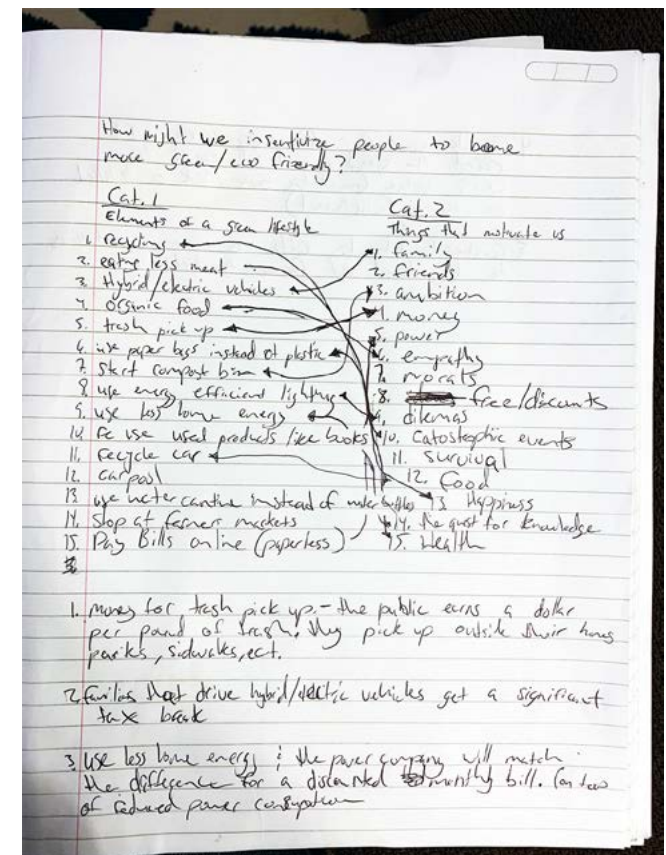 How might we insentivize people to bcome
more green/eco friendly?
Cat. 1
Elements of a green lifestyle
1. recycling
2. eating less meat
3. Hybrid/electric vehicles
4. organic food
5. trash pick up
6. use paper bags instead of plastic
7. start compost bin
8. use energy efficient lighting
9. use less home energy
10. re use used products like books
11. recycle car
12. carpool
13. use water cantine instead of water bottles
14. Shop at farmer markets
15. Pay Bills online (paperless)
Cat. 2
Things that motivate us
1. family
2. friends
3. ambition
4. money
5. power
6. empathy
7. morals
8. free/discounts
9. dilemas
10. Catostrophic events
11. survival
12. food
13. Happiness
14. the quest for knowledge
15. Health
1. money for trash pick up. - the public earns a dollar
per pound of trash they pick up outside their homes
parks, sidewalks, ect.
2. families that drive hybrid/electric vehicles get a significant
tax break
3. use less home energy & the power company will match
the difference for a discounted monthly bill. (on top
of reduced power consumption